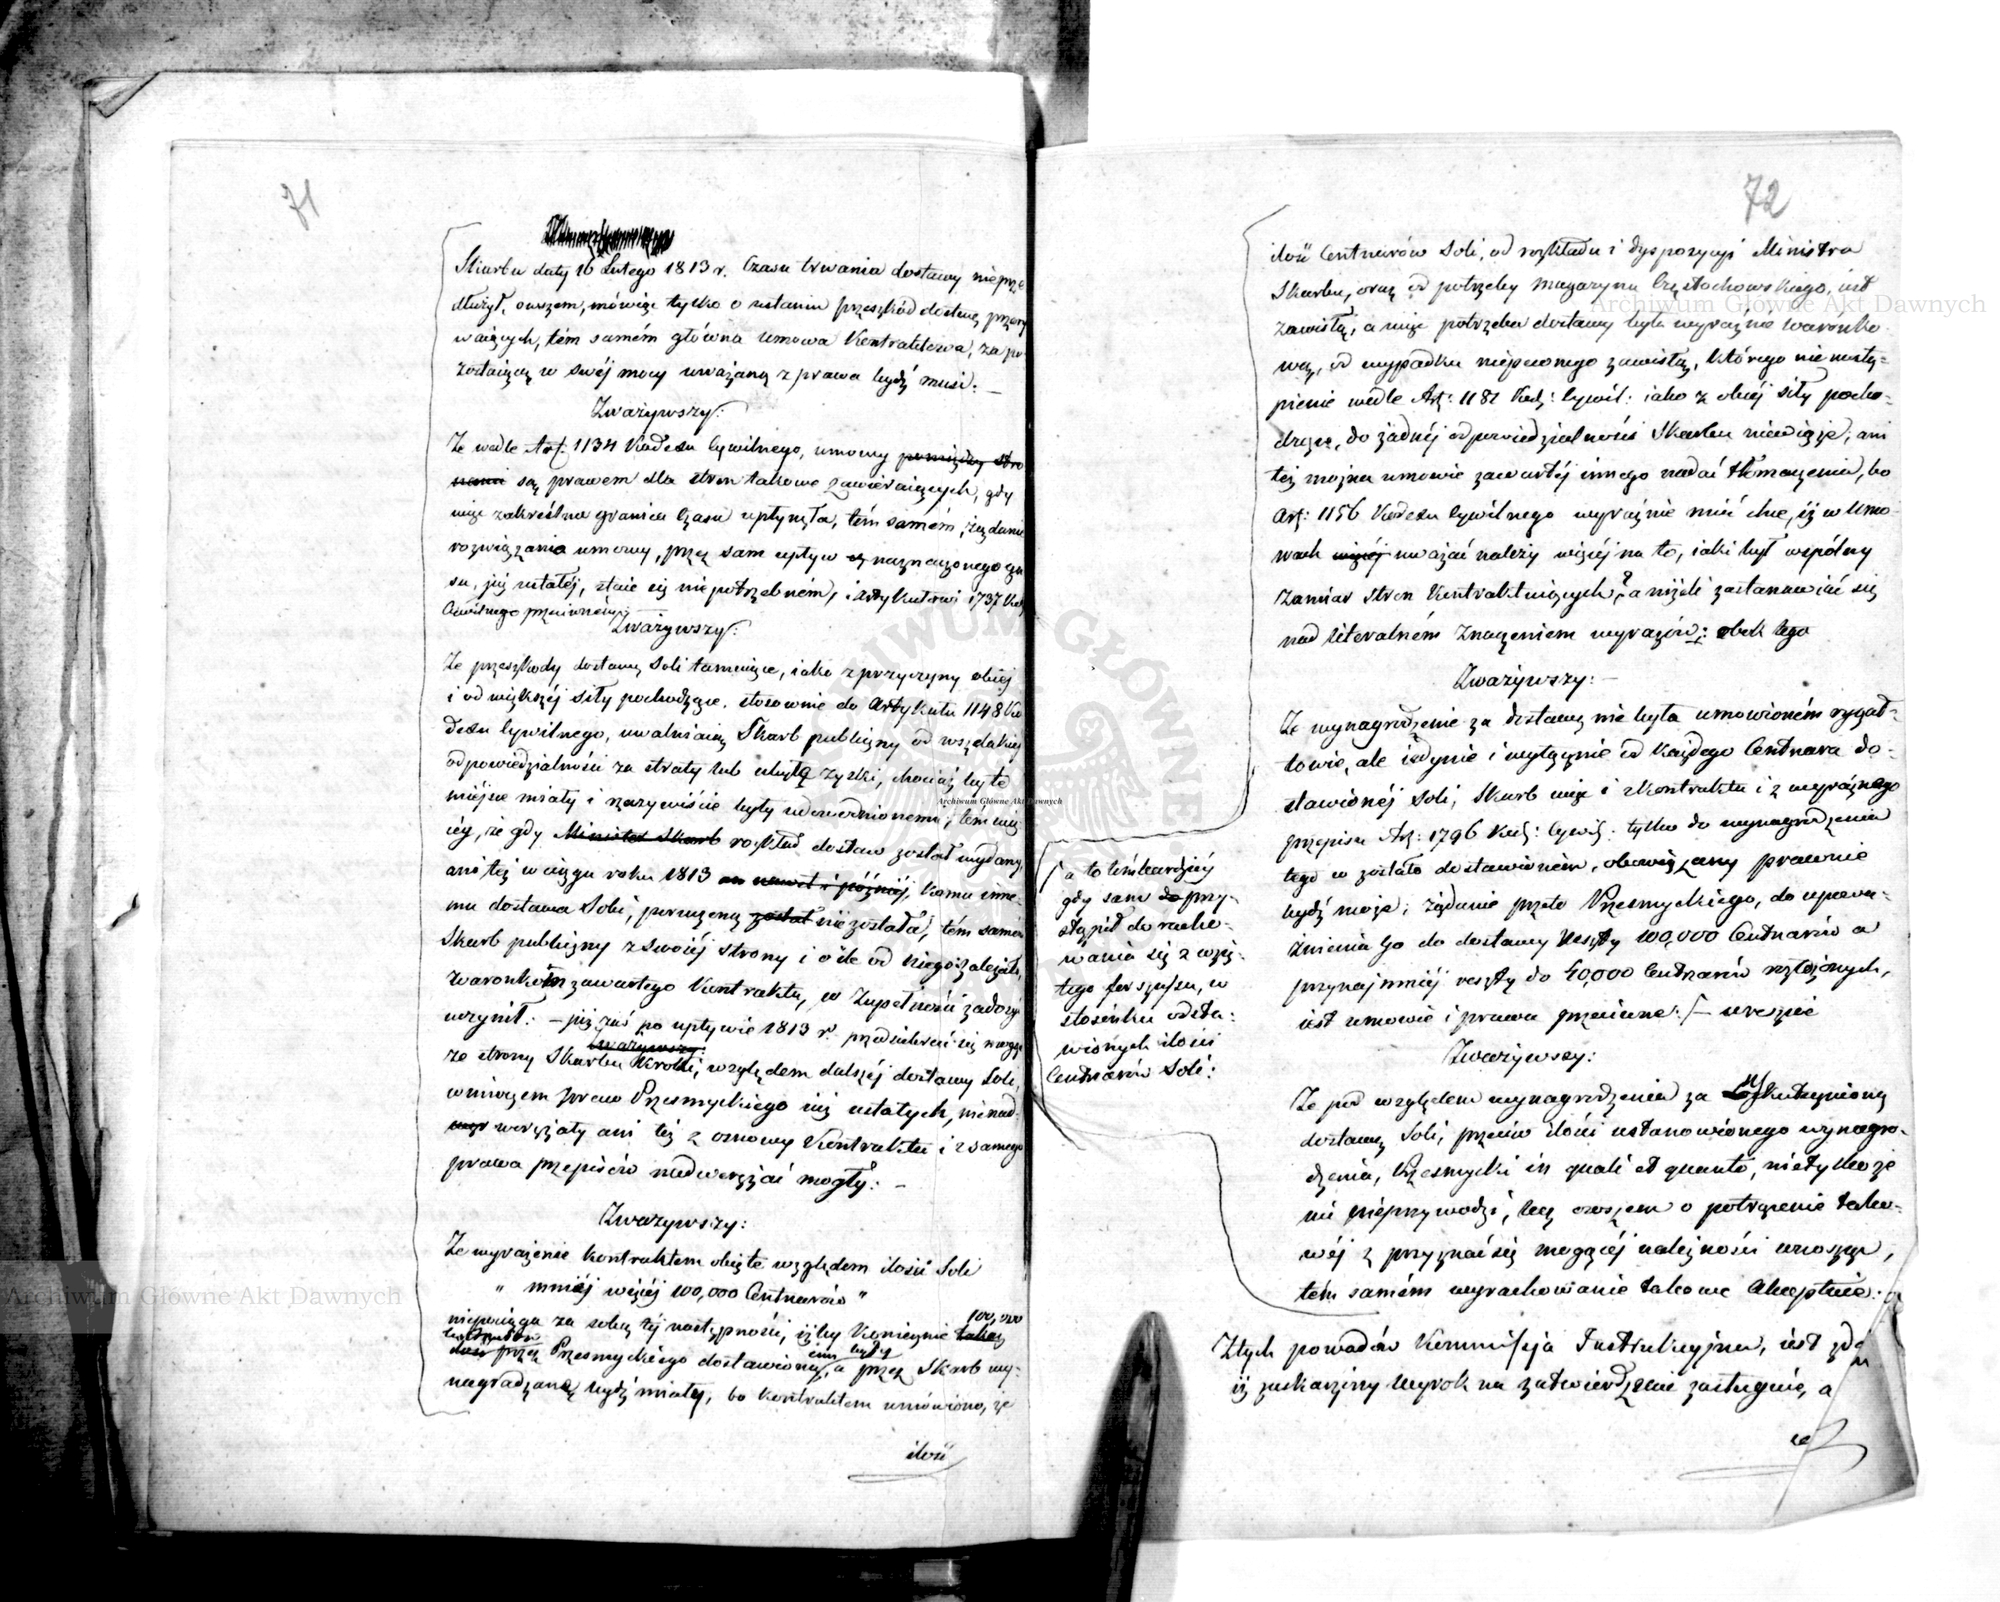 71
Skarbu daty 16 Lutego 1813 r. Czasu trwania dostawy nieprze
dłużył, owszem, mówiąc tylko o ustaniu przeszkód dostawę przery
waiących, tém samém główna umowa Kontraktowa, za po
zostaiącą w swéj mocy uważaną z prawa bydź musi: —
Zważywszy:
Ze wedle Art: 1134 Kodexu Cywilnego, umowy pomiędzy stro
nami są prawem dla stron takowe zawieraiących, gdy
więc zakreślna granica Czasu upłynęła, tém samém, żądanie
rozwiązania umowy, przez sam upływ naznaczonego cza
su, już ustałéj, staie się niepotrzebném, i Artykułowi 1737 Kod:
Cywilnego przeciwném: —
Zważywszy:
Ze przeszkody dostawę Soli tamuiące, iako z przyczyny obcéj
i od większéj siły pochodzące, stosownie do Artykułu 1148 Ko
dexu Cywilnego, uwalniaią Skarb publiczny od wszelakiéj
odpowiedzialności za straty lub ubyłe zyski, chociaż by te
miéjsce miały i rzeczywiście były udowodnionemi, tém wię
céj, że gdy Minister Skarb rozkład dostaw został wydany
ani też w ciągu roku 1813 an nawet i późniéj, komu inne
mu dostawa Soli, poruczoną został nie została, tém samém
Skarb publiczny z swoiéj strony i o ile od niego zależało,
warunkom zawartego Kontraktu, w zupełności zadosyć
uczynił: — już zaś po upływie 1813 r. przedsiebrać się mogące
Zważywszy
ze strony Skarbu Kroki, względem dalszéj dostawy Soli,
w niczem praw Przesmyckiego iuż ustałych, nie nad
weręzały ani też z osnowy Kontraktu i z samego
prawa przepisów nadweręzać mogły: —
Zważywszy:
Ze wyrażenie Kontraktem obięte względem ilości Soli
" mniéj więcéj 100,000 Centnarów "
niepociąga za sobą téj następności, iżby Koniecznie 100,000
przez Przesmyckiego dostawioną, a przez Skarb wy-
nagradzaną bydź miały, bo Kontraktem umówiono, że
ilość
72
ilość Centnarów Soli, od rozkładu i dyspozycyi Ministra
Skarbu, oraz od potrzeby Magazynu Częstochowskiego, iest
zawisłą, a więc potrzeba dostawy była wyraźnie warunko-
wą, od wypadku niepewnego zawisłą, którego nienastą-
pienie wedle Art: 1181 Kod: Cywil: iako z obcéj siły pocho-
dzące, do żadnéj odpowiedzialności Skarbu niewiąże, ani
też można umowie zawartéj innego nadać tłomaczenia, bo
Art: 1156 Kodexu Cywilnego wyraźnie mieć chce, iż w Umo-
wach więcéj uważać należy więcéj na to, iaki był wspólny
zamiar stron Kontraktuiących, a niżeli zastanawiać się
nad literalném znaczeniem wyrazów: obok tego
Zważywszy: —
Ze wynagrodzenie za dostawę nie było umowioném ryczał-
towie, ale iedynie i wyłącznie od każdego Centnara do-
stawionéj Soli, Skarb więc i z Kontraktu i z wyraźnego
przepisu Art: 1796 Kod: Cywil: tylko do wynagrodzenia
tego co zostało dostawioném, obowiązany prawnie
bydź może; żądanie przeto Przesmyckiego, do upowa-
żnienia Go do dostawy reszty 100,000 Centnarów a
przynajmniéj reszty do 40,000 Centnarów rozłożonych,
iest umowie i prawu przeciwne: — wreszcie
a to tém bardziéj
gdy sam do przy-
stąpił do racho-
wania się z wzię-
tego forszusu, w
stosunku odsta-
wionych ilości
Centnarów Soli:
Zważywszy:
Ze pod względem wynagrodzenia za uskutecznioną
dostawę Soli, przeciw ilości ustanowionego wynagro-
dzenia, Przesmycki in quali et quanto, nietylko że
nic nieprzywodzi, lecz owszem o potrącenie tako-
wéj z przyznać się mogącéj należności wnosząc,
tém samém wyrachowanie takowe akceptuie:
Z tych powodów Kommissya Instrukcyjna, iest zda
iż zaskarżony Wyrok na zatwierdzenie zasługuie, a